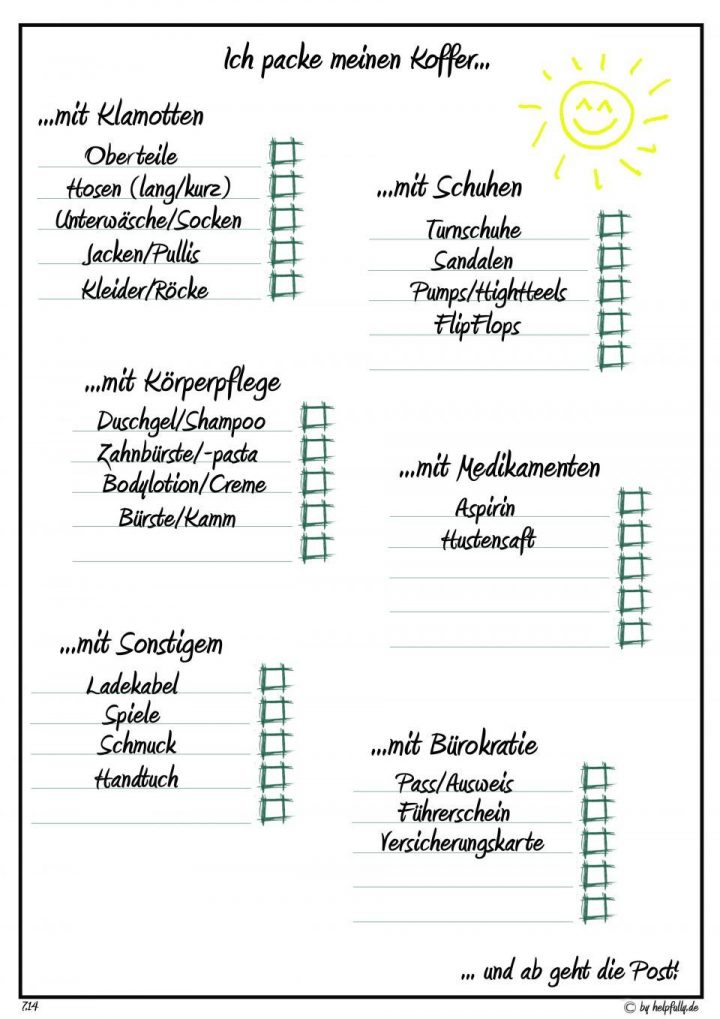 Ich packe meinen Koffer...
...mit Klamotten
Oberteile
Hosen (lang/kurz)
Unterwäsche/Socken
Jacken/Pullis
Kleider/Röcke
...mit Schuhen
Turnschuhe
Sandalen
Pumps/HighHeels
FlipFlops
...mit Körperpflege
Duschgel/Shampoo
Zahnbürste/-pasta
Bodylotion/Creme
Bürste/Kamm
...mit Medikamenten
Aspirin
Hustensaft
...mit Sonstigem
Ladekabel
Spiele
Schmuck
Handtuch
...mit Bürokratie
Pass/Ausweis
Führerschein
Versicherungskarte
... und ab geht die Post!
7.14
© by helpfully.de